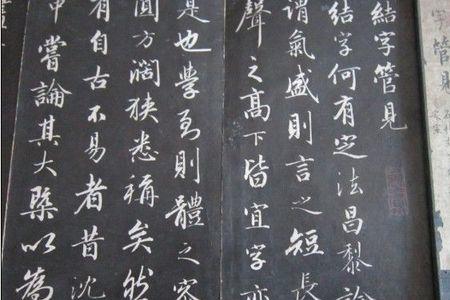 字管見
結字管見
結字何有定法昌黎論
謂氣盛則言之短長
聲之高下皆宜字亦
是也學到則體之
圓方濶狹悉稱矣然
有自古不易者昔沈
中嘗論其大槩以為